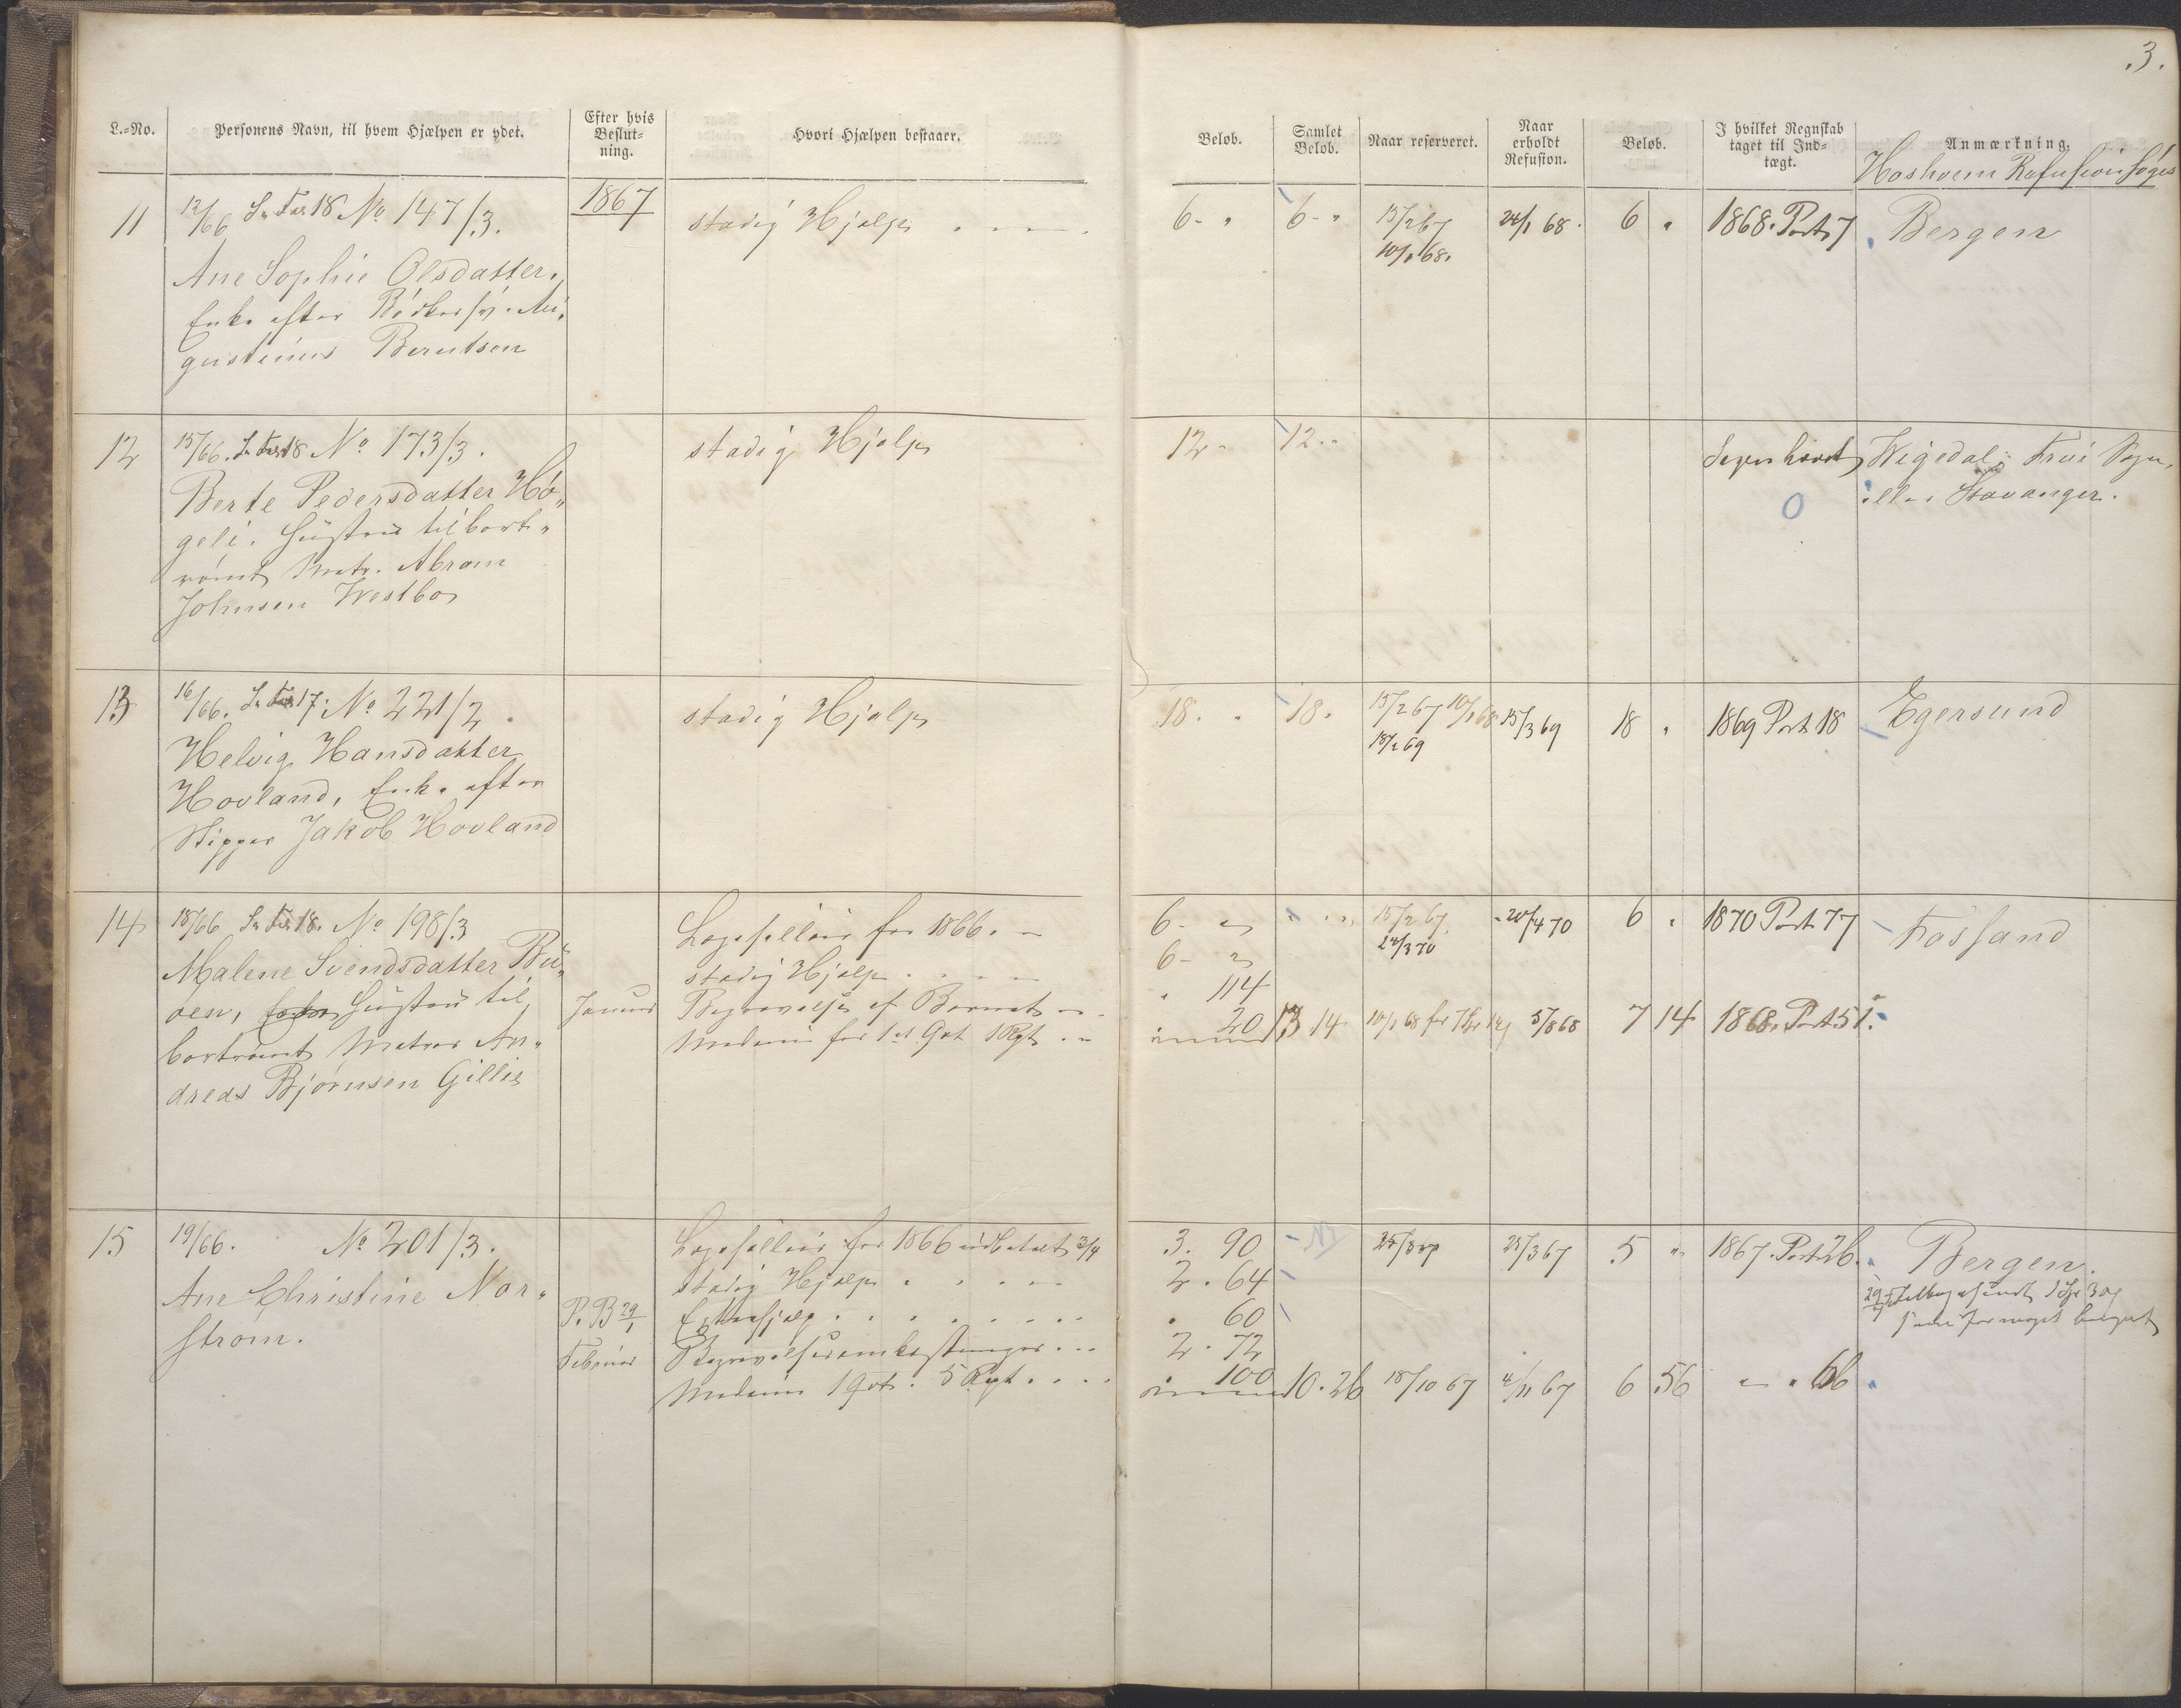 3.
L.=No.
Personens Navn, til hvem Hjælpen er ydet.
Efter hvis Beslut=ning.
Hvori Hjælpen bestaaer.
Beløb.
Samlet Beløb.
Naar reserveret.
Naar erholdt Refusion.
Beløb.
I hvilket Regnskab taget til Ind=tægt.
Anmærkning.
Hoshvem Refusion søges
11
12/66 18 No 147/3.
1867
stadig Hjælp
6 - "
6 - "
15/2 67
24/1 68.
6 "
1868. Post 7
Bergen
Ane Sophie Olsdatter,
10/1 68.
Enke efter Bødkersv. Au,
gustinus Berntsen
12
15/66. 18 No 173/3.
stadig Hjælp
12 -
12 - -
Wigedal,
Berte Pedersdatter Hø,,
eller Stavanger.
geli. Hustru til bort,,
0
rømt Matr. Abram
Johnsen Westbø
13
16/66. 17. No 221/2.
stadig Hjælp
18. "
18.
15/2 67 10/1 68
15/3 69
18 "
1869 Post 18
Egersund
Helvig Hansdatter
18/2 69
Hovland, Enke efter
Skipper Jakob Hovland
14
18/66 18. No 198/3
for 1866. -
6 -
15/2 67.
20/4 70
6 "
1870 Post 77
Fossand
Malene Svendsdatter Bu,,
stadig Hjælp
6 -
24/3 70
øen, Hustru til
Januar
Begravelse af Barnet
" 114
bortrømt Matros An,,
Medicin for 1st Qvt 1 Rpt
" 20
13 14
10/1 68 for
5/8 68
7 14
1868. Post 51.
dreas Bjørnsen Gillie
15
19/66. No 201/3.
for 1866 udbetalt 3/4
3. 90
25/3 67
5 "
1867. Post 26.
Bergen.
Ane Christine Nor,,
stadig Hjælp
2. 64
strøm.
P. B 29/1
Extrahjælp
" 60
Februar
Begravelsesomkostninger
2. 72
Medicin 1 Qvt. 5 Rpt.
" 100
10. 26
18/10 67
4/11 67
6 56
" " 66